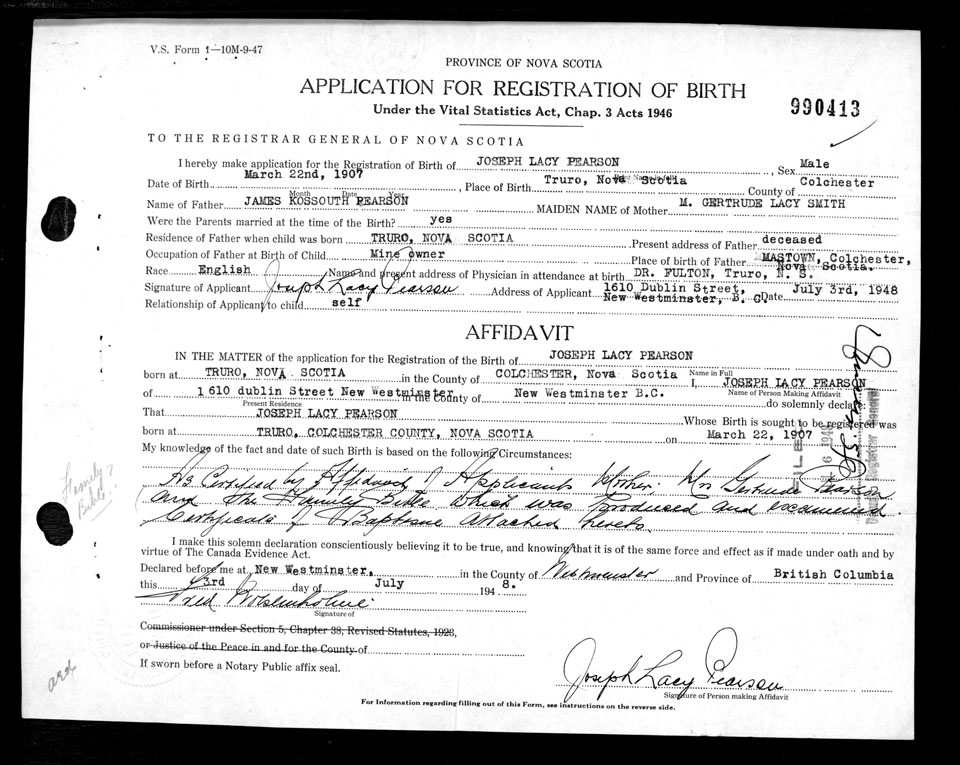 V.S. Form 1—10M-9-47
PROVINCE OF NOVA SCOTIA
APPLICATION FOR REGISTRATION OF BIRTH
Under the Vital Statistics Act, Chap. 3 Acts 1946
990413
TO THE REGISTRAR GENERAL OF NOVA SCOTIA
I hereby make application for the Registration of Birth of JOSEPH LACY PEARSON, Sex Male
Date of Birth March 22nd, 1907, Place of Birth Truro, Nova Scotia County of Colchester
Month Date Year
Name of Father JAMES KOSSOUTH PEARSON MAIDEN NAME of Mother M. GERTRUDE LACY SMITH
Were the Parents married at the time of the Birth? yes
Residence of Father when child was born TRURO, NOVA SCOTIA Present address of Father deceased
Occupation of Father at Birth of Child Mine owner Place of birth of Father MASTOWN, Colchester, Nova Scotia.
Race English Name and present address of Physician in attendance at birth DR. FULTON, Truro, N. S.
Signature of Applicant Joseph Lacy Pearson Address of Applicant 1610 Dublin Street, New Westminster, B. C. Date July 3rd, 1948
Relationship of Applicant to child self
AFFIDAVIT
IN THE MATTER of the application for the Registration of the Birth of JOSEPH LACY PEARSON
Name in Full
born at TRURO, NOVA SCOTIA in the County of COLCHESTER, Nova Scotia I, JOSEPH LACY PEARSON
Name of Person Making Affidavit
of 1610 dublin Street New Westminster in the County of New Westminster B.C. do solemnly declare:
Present Residence
That JOSEPH LACY PEARSON Whose Birth is sought to be registered was
born at TRURO, COLCHESTER COUNTY, NOVA SCOTIA on March 22, 1907
My knowledge of the fact and date of such Birth is based on the following Circumstances:
As Certified by Affidavit of Applicants Mother. Mrs Gertrude Pearson
and the Family Bible which was produced and examined.
Certificate of Baptism attached hereto
Family Bible?
I make this solemn declaration conscientiously believing it to be true, and knowing that it is of the same force and effect as if made under oath and by
virtue of The Canada Evidence Act.
Declared before me at New Westminster, in the County of Westminster and Province of British Columbia
this 3rd day of July 1948.
Fred
Signature of
Commissioner under Section 5, Chapter 38, Revised Statutes, 1923,
or Justice of the Peace in and for the County of
If sworn before a Notary Public affix seal.
Joseph Lacy Pearson
Signature of Person making Affidavit
For Information regarding filling out of this Form, see instructions on the reverse side.